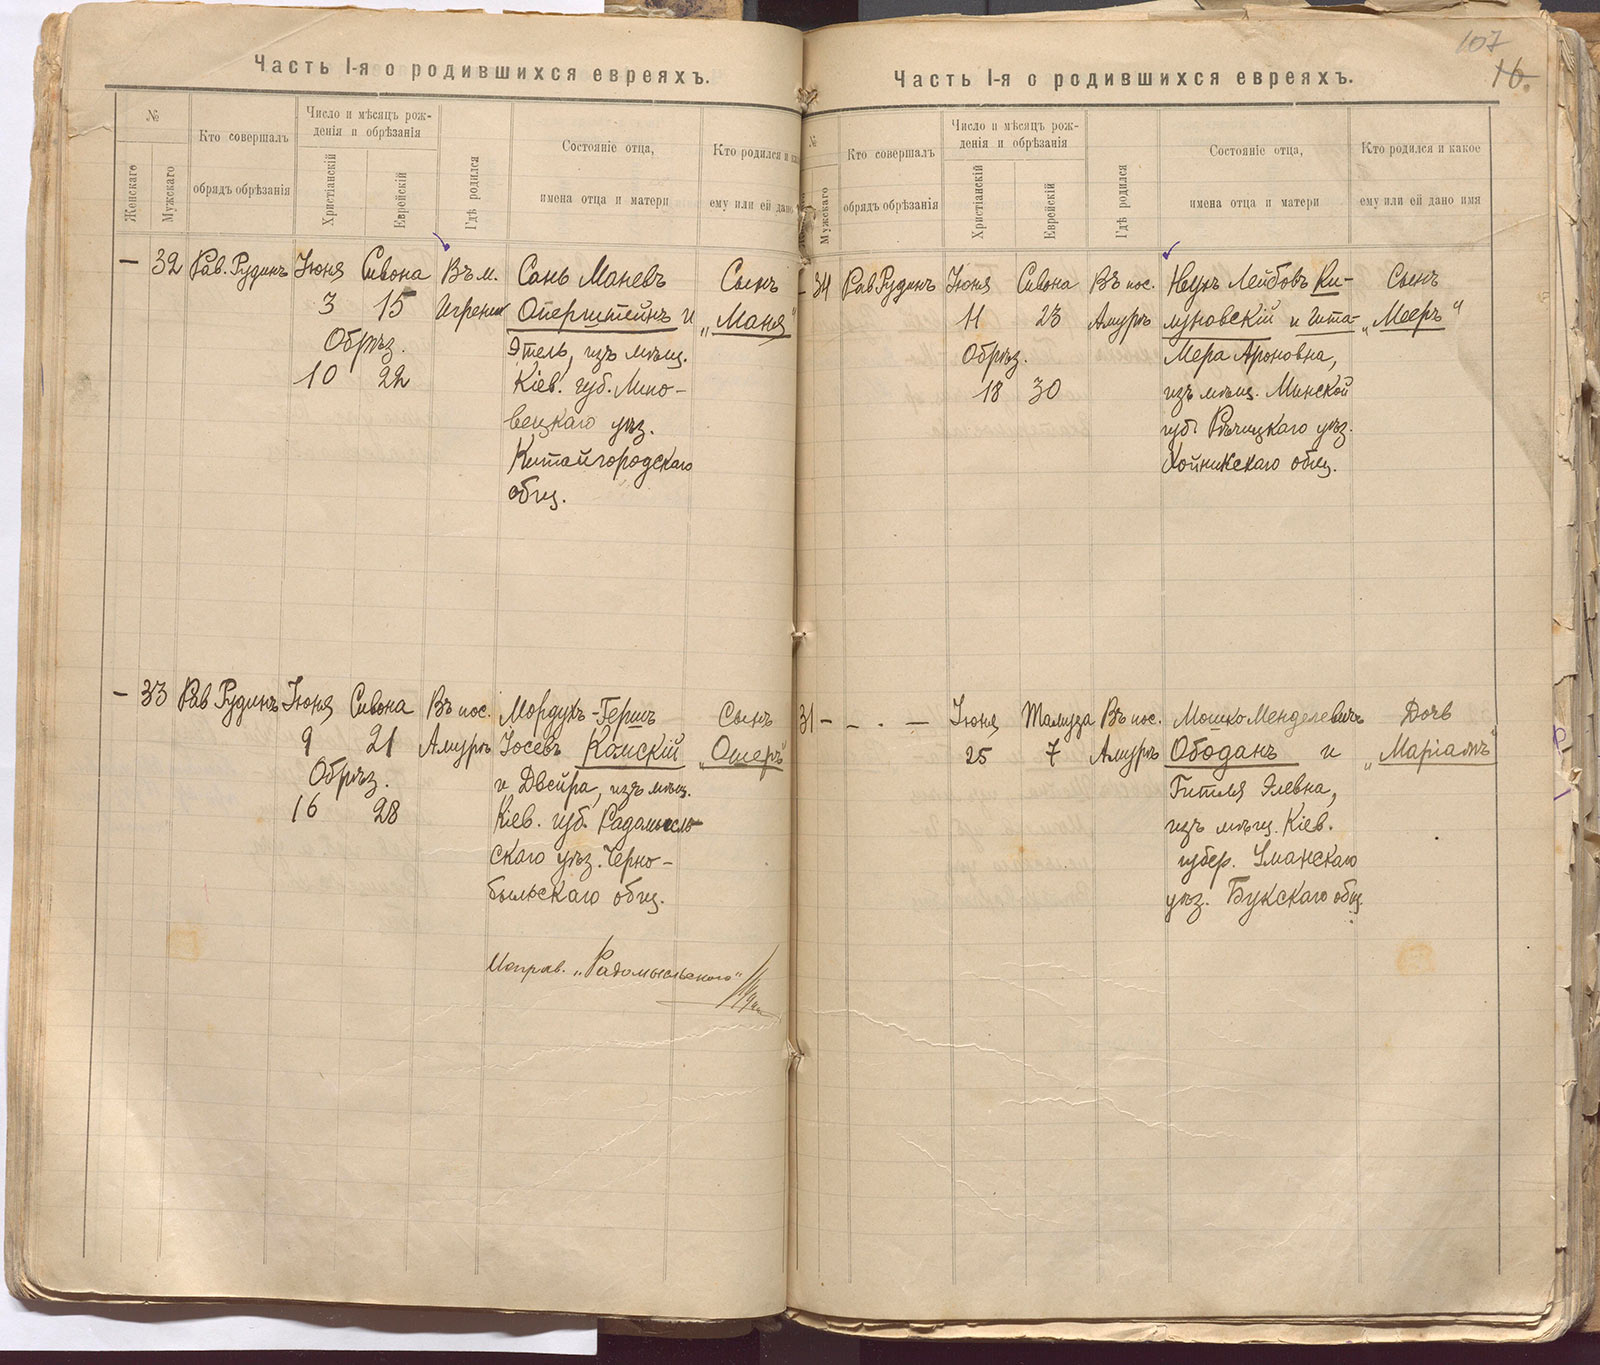 Часть I-я о родившихся евреяхъ.
№
Женскаго
Мужскаго
Кто совершалъ
обрядъ обрѣзанія
Число и мѣсяцъ рож-
денія и обрѣзанія
Христіанскій
Еврейскій
Гдѣ родился
Состояніе отца,
имена отца и матери
Кто родился и как
ему или ей дано
— 32 Рав. Рудинъ Іюня Сивона Въ м. Сань Маневъ Сынъ
3 15 Игрени Оперштейнъ и „Маня"
Обрѣз. Этель, изъ мѣщ.
10 22 Кіев. губ. Липо-
вецкаго уѣз.
Китайгородскаго
общ.
— 33 Рав Рудинъ Іюня Сивона Въ пос. Мордухъ-Гершъ Сынъ
9 21 Амуръ Іосевъ Камскій „Ошеръ"
Обрѣз. и Двейра, изъ мѣщ.
16 28 Кіев. губ. Радомысль
скаго уѣз. Черно-
быльскаго общ.
Исправ. „Радомысльскаго"
107
16.
Часть I-я о родившихся евреяхъ.
№
Мужскаго
Кто совершалъ
обрядъ обрѣзанія
Число и мѣсяцъ рож-
денія и обрѣзанія
Христіанскій
Еврейскій
Гдѣ родился
Состояніе отца,
имена отца и матери
Кто родился и какое
ему или ей дано имя
— 34 Рав Рудинъ Іюня Сивона Въ пос. Нухъ Лейбовъ Ки- Сынъ
11 23 Амуръ луновскій и Шта- „Мееръ"
Обрѣз. Мера Ароновна,
18 30 изъ мѣщ. Минской
губ. Рѣчицкаго уѣз.
Хойникскаго общ.
31 — — . — Іюня Тамуза Въ пос. Мошко Менделевичъ Дочь
25 7 Амуръ Ободанъ и „Маріамъ"
Гитля Элевна,
изъ мѣщ. Кіев.
губер. Уманскаго
уѣз. Букскаго общ.